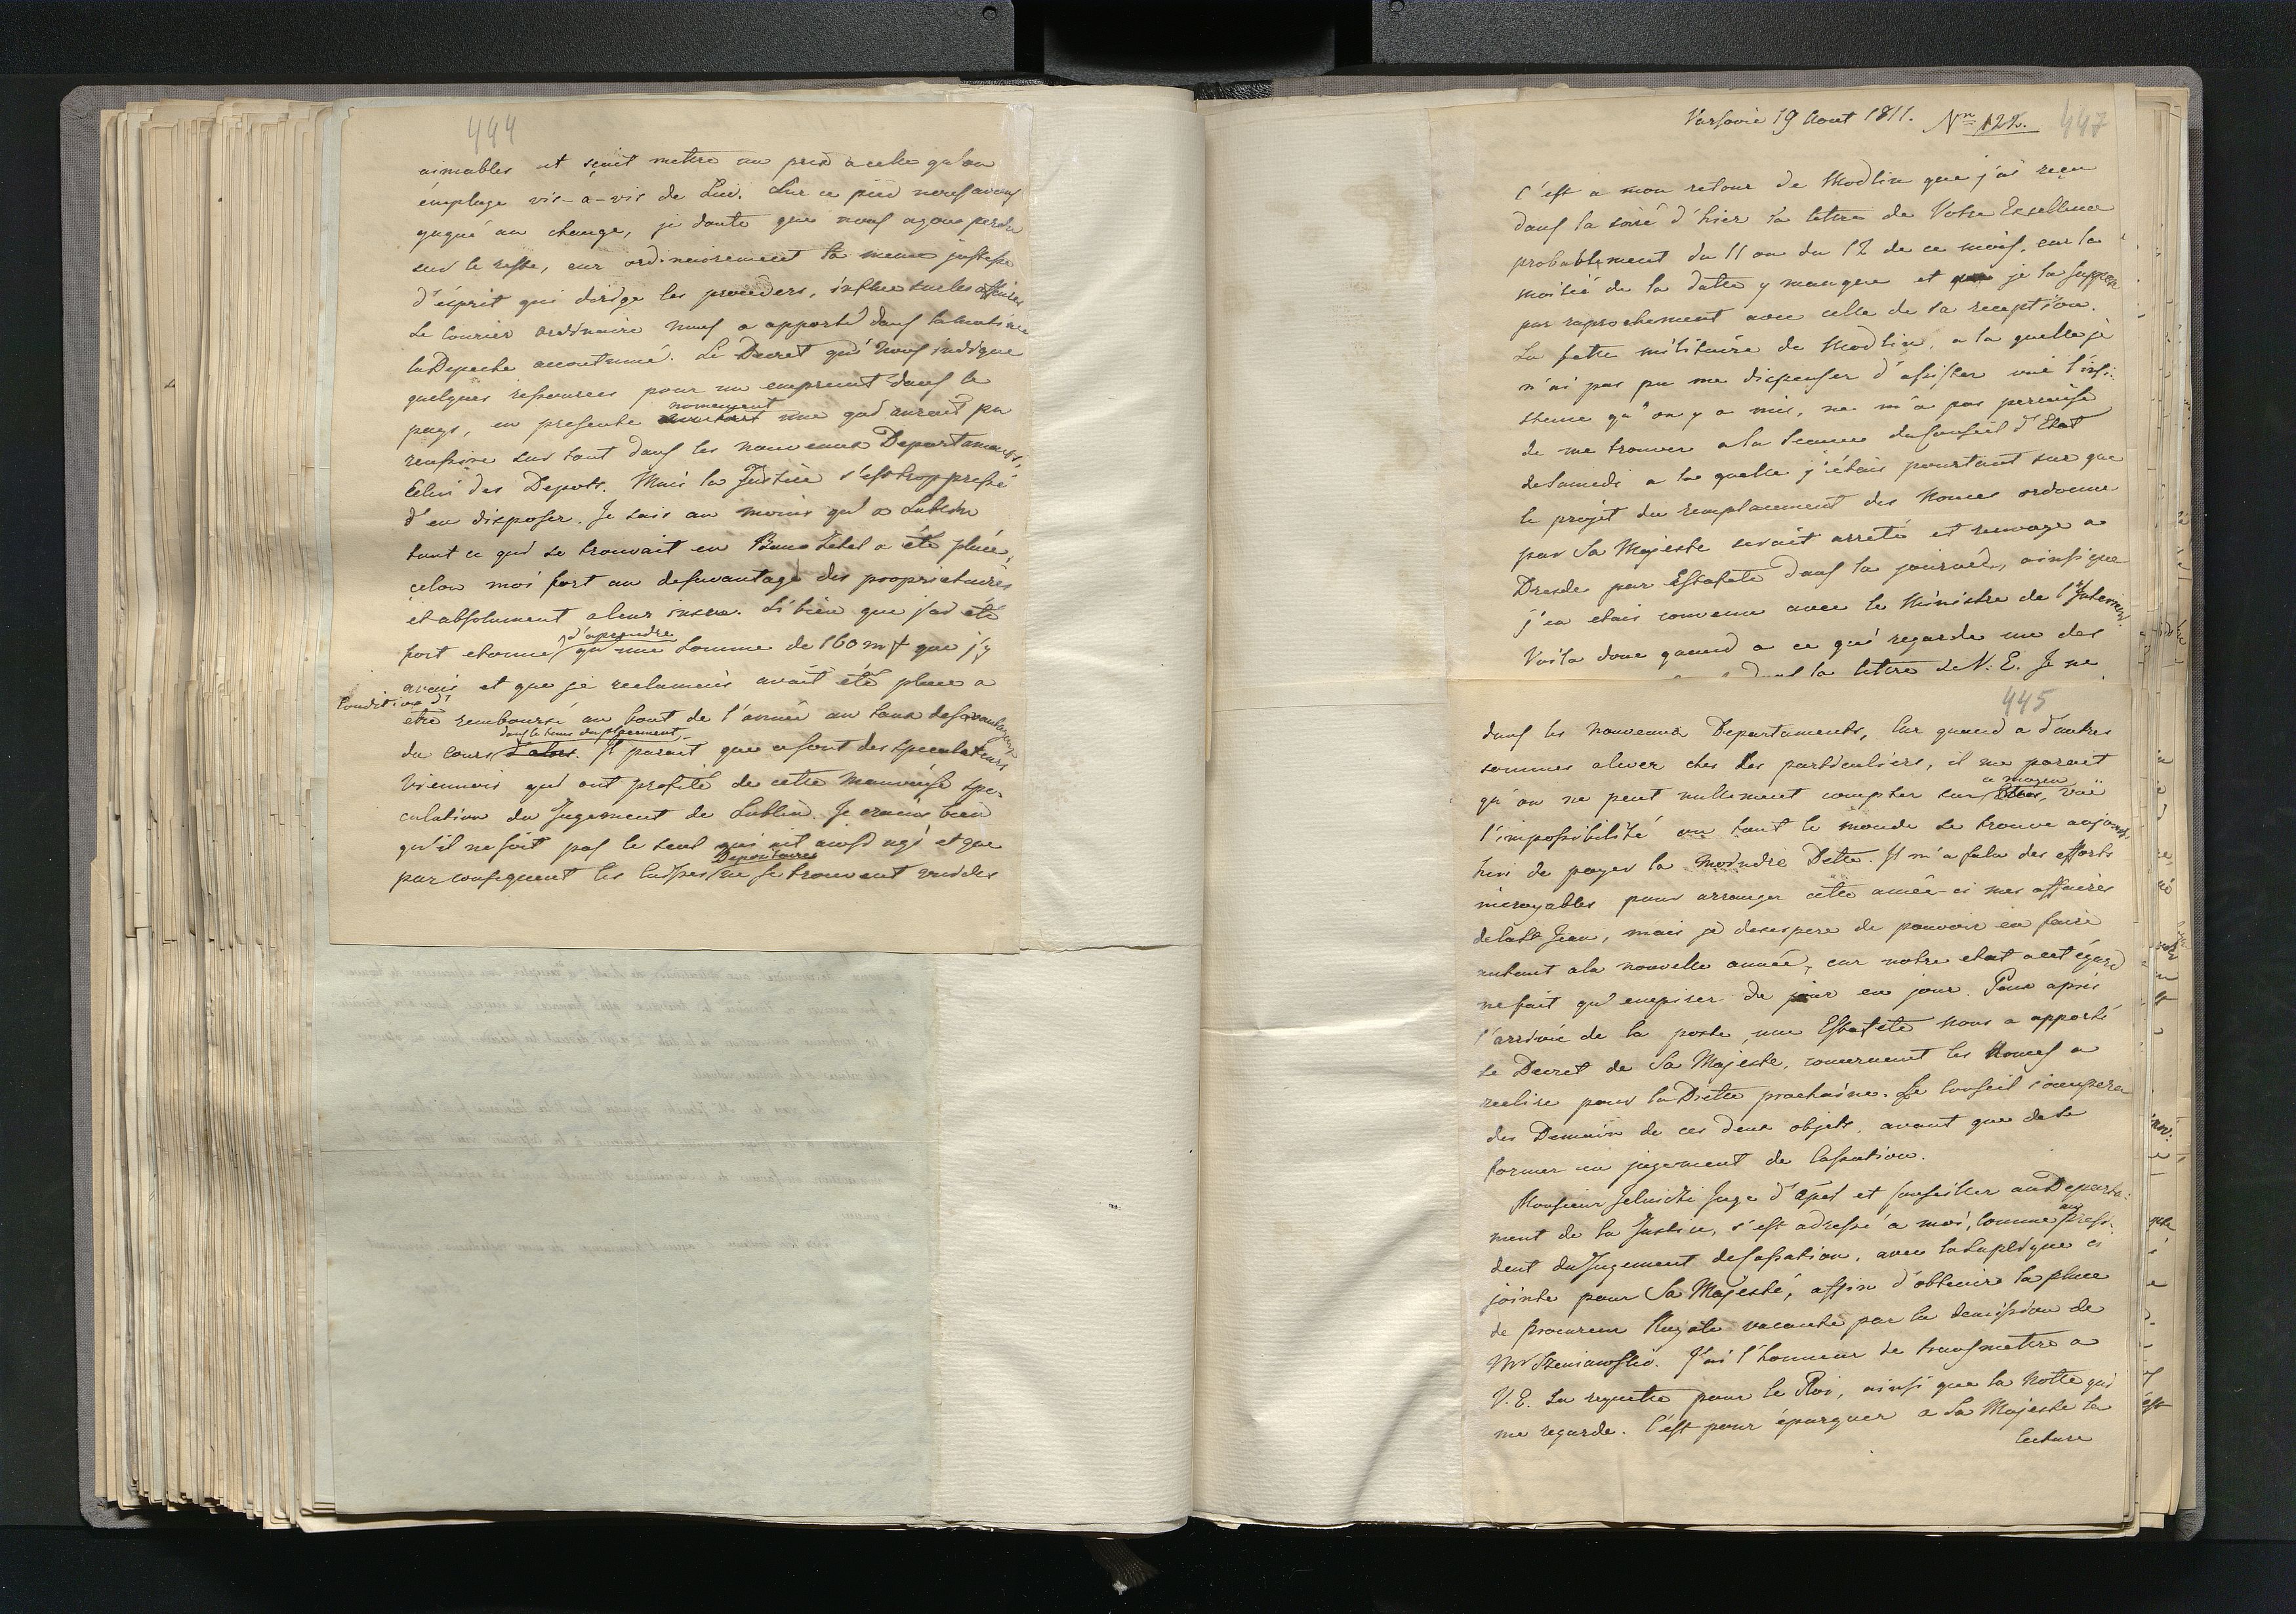 444
aimables et sçait metre un prix a celle qu'on
émploye vis-a-vis de Lui. Sur ce pied nous avons
gagné au change, je doute que nous ayons perdu
sur le reste, car ordinairement la meme justesse
d'ésprit qui dirige les procéders, influe sur les affaires
Le Courier ordinaire nous a apporté dans la matinée
la Depeche accoutumé. Le Decret qui nous indique
quelques ressources pour un emprunt dans le
nomement
pays, en presente une qui aurait pu
reussire sur tout dans les nouveaux Departamens,
Celui des Depots. Mais la Justice s'est trop pressé
d'en disposer. Je sais au moins qu'a Lublin
tout ce qui se trouvait en a été placé,
celon moi fort au desavantage des proprietaires
et absolument a leur inscu. Si bien que j'ai été
d'aprendre
fort etonné qu'une Somme de 160 m que j'y
avais et que je reclamais avait été placé a
Condition d'
etre remboursé au bout de l'année au taux desavantageux
dans le tems du placement
du cours d'alors. Il parait que ce sont des speculateurs
Viennois qui ont profité de cette mauvaise spe-
culation du Jugement de Lublin. Je crains bien
qu'il ne soit pas le seul qui ait ainsi agi et que
Depositaires
par consequent les Caisses ne se trouvent vuides
Varsovie 19 Aout 1811. Nro 122. 447
C'est a mon retour de Modlin que j'ai reçu
dans la soiré d'hier la lettre de Votre Excellence
probablement du 11 ou du 12 de ce mois, car la
moitié de la datte y manque et je la suppose
par raprochement avec celle de la reception.
La fette militaire de Modlin, a la quelle je
n'ai pas pu me dispenser d'assister vuë l'insi-
stence qu'on y a mis, ne m'a pas permise
de me trouver a la Seance du Conseil d'Etat
de Samedi a la quelle j'étais pourtant sur que
le projet du remplacement des Nonces ordonné
par Sa Majesté serait arreté et renvoyé a
Dresde par Estafete dans la journée, ainsi que
j'en etais convenu avec le Ministre de l'Interieur.
Voila donc quand a ce qui regarde une des
la lettre de V. E. Je ne
445
dans les nouveaux Departaments, Car quand a d'autres
sommes a lever ches les particuliers, il me parait
ce moyen
qu'on ne peut nullement compter sur Elles, vuë
l'impossibilité ou tout le monde se trouve aujourd'
hui de payer la moindre Dette. Il m'a falu des efforts
incroyables pour arranger cette année-ci mes affaires
de la St Jean, mais je desespere de pouvoir en faire
autant a la nouvelle année, car notre etat a cet égard
ne fait qu'empirer de jour en jour. Peu après
l'arrivée de la poste, une Estafete nous a apporté
le Decret de Sa Majesté, concernant les Nonces a
reelire pour la Diette prochaine. Le Conseil s'occupera
des Demain de ces deux objets, avant que de se
former en jugement de Cassation.
Monsieur Juge d'Apel et Conseiller au Departa-
ment de la Justice, s'est adressé a moi, Comme au Presi-
dent du Jugement de Cassation, avec la Suplique ci
jointe pour Sa Majesté, affin d'obtenir la place
de Procureur Royale vacante par la demission de
Mr Szeniawski. J'ai l'honneur de transmettre a
V. E. La requette pour le Roi, ainsi que la Notte qui
me regarde. C'est pour épargner a Sa Majesté la
lecture